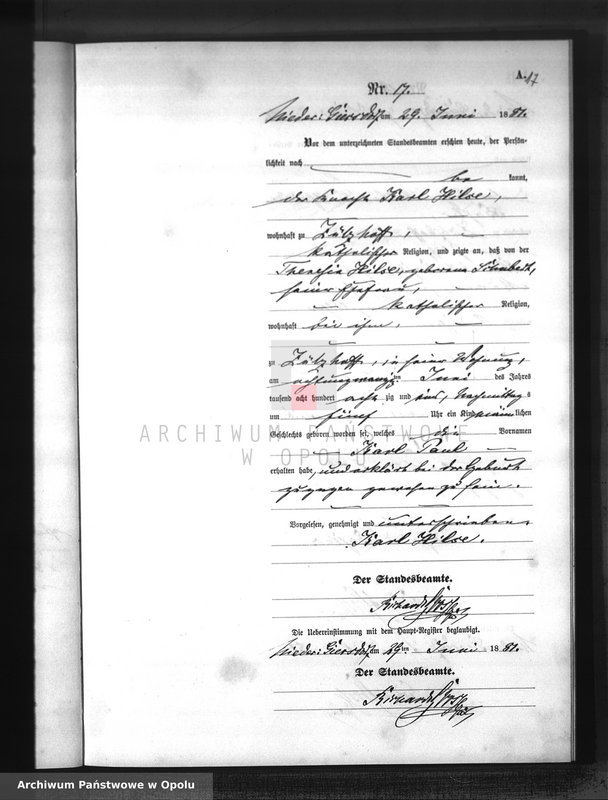 A. 17
Nr. 17.
Nieder: Giersdorf am 29. Juni 1881.
Vor dem unterzeichneten Standesbeamten erschien heute, der Persön-
lichkeit nach
be kannt,
der Knecht Karl Hilse,
wohnhaft zu Zülzhoff,
katholischer Religion, und zeigte an, daß von der
Theresia Hilse, geborene Schubert,
seiner Ehefrau,
katholischer Religion,
wohnhaft bei ihm,
zu Zülzhoff, in seiner Wohnung,
am achtundzwanzigsten Juni des Jahres
tausend acht hundert achtzig und eins, Nachmittags
um fünf Uhr ein Kind männlichen
Geschlechts geboren worden sei, welches die Vornamen
Karl Paul
erhalten habe, und erklärt bei der Geburt
zugegen gewesen zu sein.
Vorgelesen, genehmigt und unterschrieben.
Karl Hilse.
Der Standesbeamte.
Die Uebereinstimmung mit dem Haupt-Register beglaubigt.
Nieder: Giersdorf am 29ten Juni 1881.
Der Standesbeamte.
ARCHIWUM PAŃSTWOWE
W OPOLU
Archiwum Państwowe w Opolu